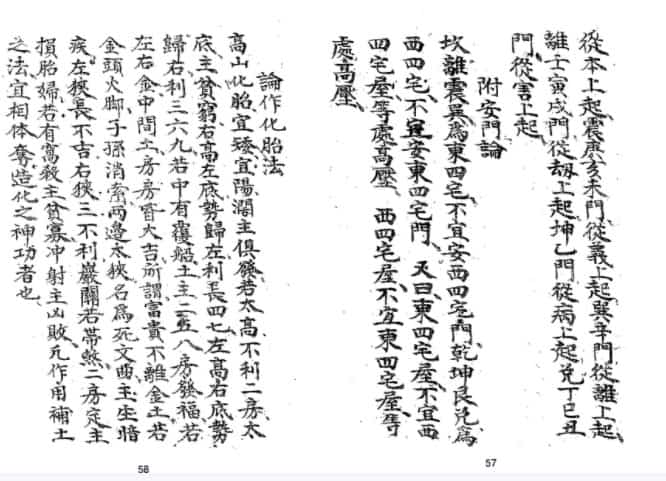 從本上起震庚亥未門從義上起巽辛門從離上起
離壬寅戌門從刼上起坤乙門從病上起兌丁巳丑
門從害上起
附安門論
坎離震巽為東四宅不宜安西四宅門乾坤艮兌為
西四宅不宜安東四宅門又曰東四宅屋不宜西
四宅屋等處高壓 西四宅屋不宜東四宅屋等
處高壓
57
論作化胎法
高山化胎宜矮宜陽濶主俱發若太高不利二房太
底主貧窮右高左底勢歸左利長四七左高右底勢
歸右利三六九若中有覆船土主二五八房發福若
左右金中間土房房皆大吉所謂富貴不離金土若
金頭火脚子孫消索兩邊太狹名爲死文曲主生暗
疾左狹長不吉右狹三不利巖關若帶煞二房定主
損胎婦若有窩殺主貧寡冲射主凶敗凢作用補土
之法宜相体奪造化之神功者也
58